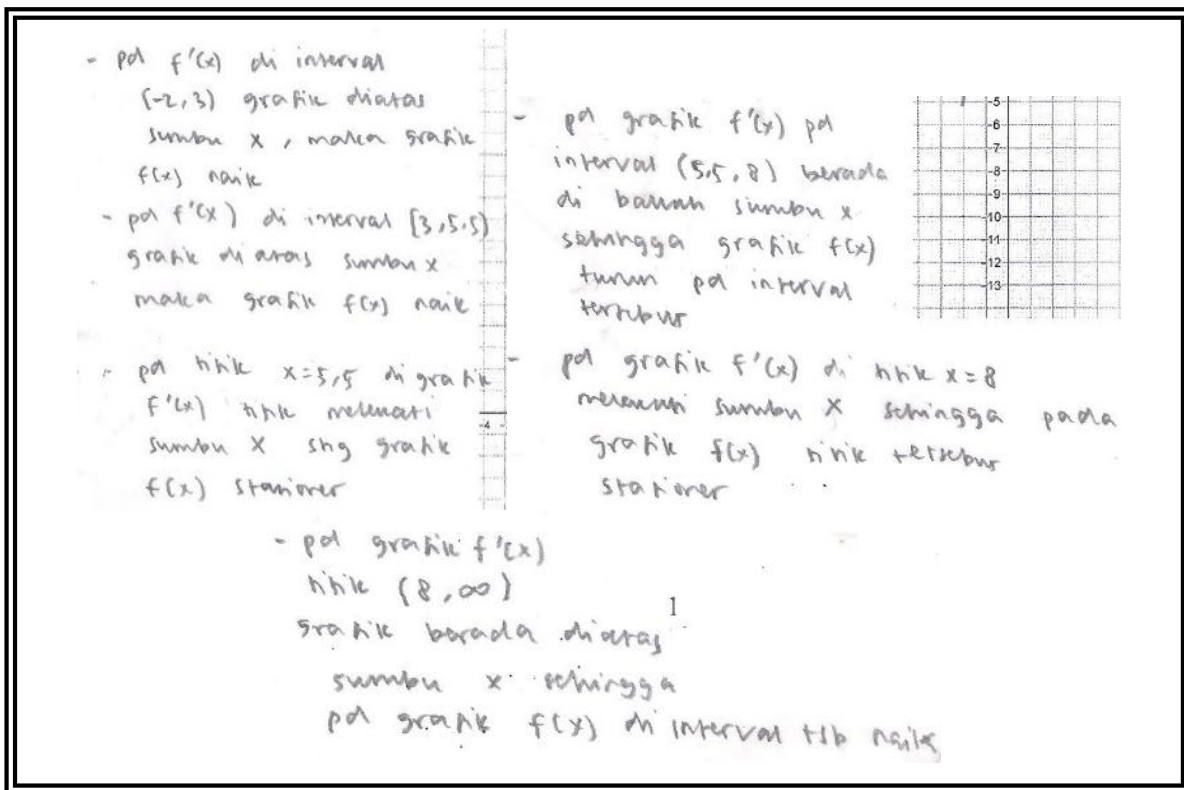 - pd f'(x) di interval
(-2, 3) grafik diatas
sumbu x, maka grafik
f(x) naik
- pd f'(x) di interval [3, 5.5)
grafik di atas sumbu x
maka grafik f(x) naik
- pd titik x = 5,5 di grafik
f'(x) titik melewati
sumbu X shg grafik
f(x) stasioner
-4
- pd grafik f'(x) pd
interval (5,5, 8) berada
di bawah sumbu x
sehingga grafik f(x)
turun pd interval
tersebut
- pd grafik f'(x) di titik x = 8
melewati sumbu X sehingga pada
grafik f(x) titik tersebut
stasioner
-5
-6
-7
-8
-9
-10
-11
-12
-13
- pd grafik f'(x)
titik (8, ∞)
grafik berada diatas
sumbu x sehingga
pd grafik f(x) di interval tsb naik
1